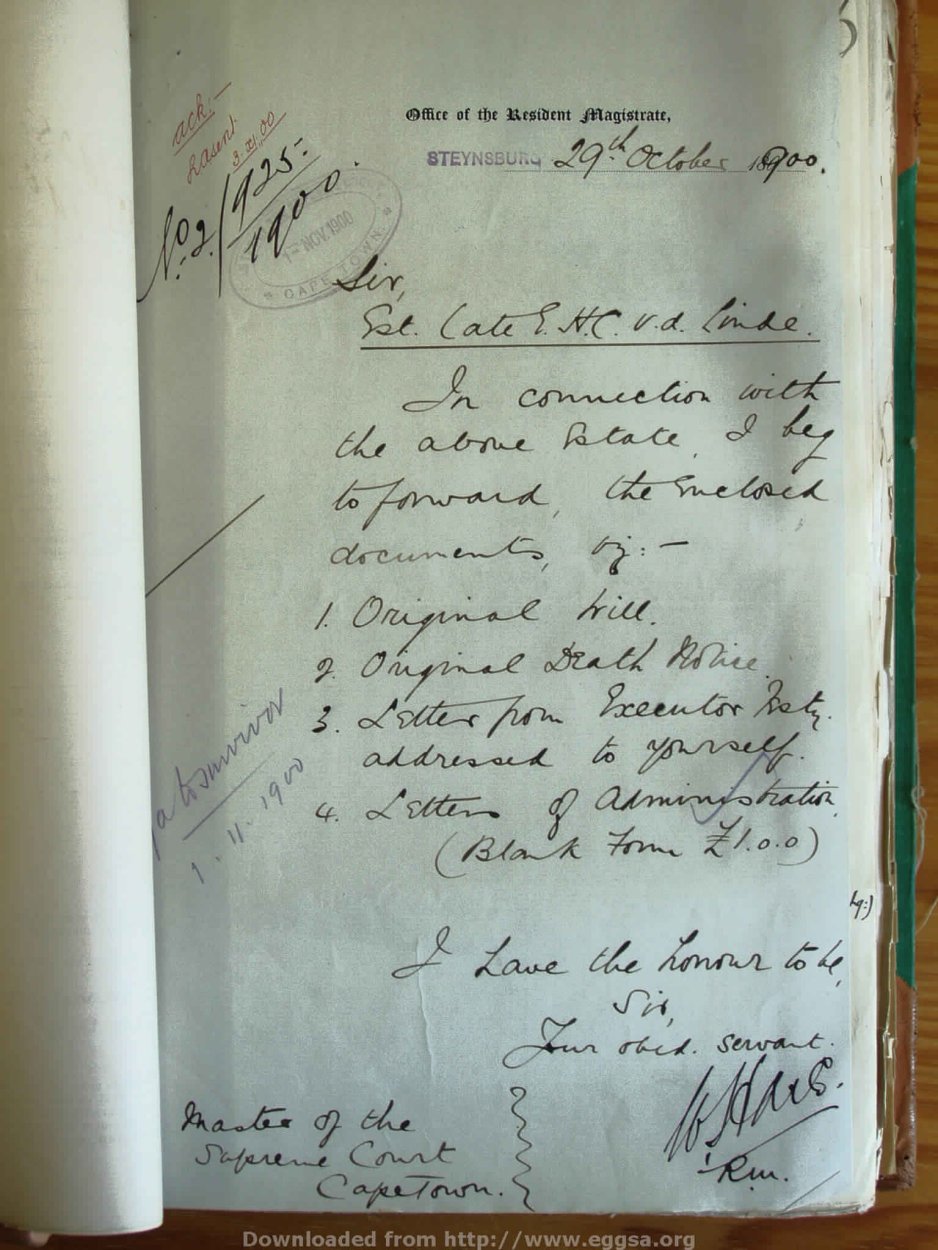 ack:-
3.XI.00
No. 2/1925.
1900
1st NOV. 1900
CAPE TOWN
Office of the Resident Magistrate,
STEYNSBURG 29th October 1900.
Sir,
Est. Late E. H.C. v.d. Linde.
In connection with
the above Estate, I beg
to forward, the Enclosed
documents, viz:-
1. Original Will.
2. Original Death Notice
3. Letter from Executor Testy.
addressed to yourself.
4. Letters of Administration
(Blank Form £1.0.0)
to survivor
1.11.1900
I have the honour to be,
Sir,
Your obed. servant.
R.M.
Master of the
Supreme Court
Cape Town.
Downloaded from http://www.eggsa.org